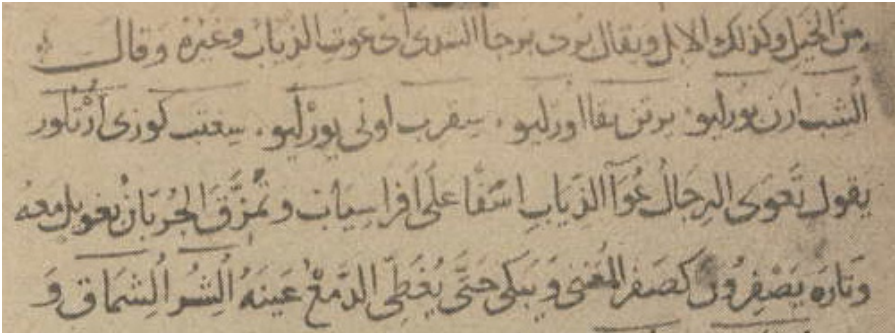 من الخيل وكذلك الابل ويقال بورى برجا السدى اى عوت الذياب وغيره وقال
الشب ارن بورليو يرتن يقا اورليو سقرب اونى يورليو سغتب كوزى ارتلور
يقول تعوى الرجال عوآ الذياب اسفا على افراسياب وتمزق الجربان بعويل معه
وتاره يصفرون كصفر المغنى ويبكى حتى يغطى الدمع عينه الشر الشماق و